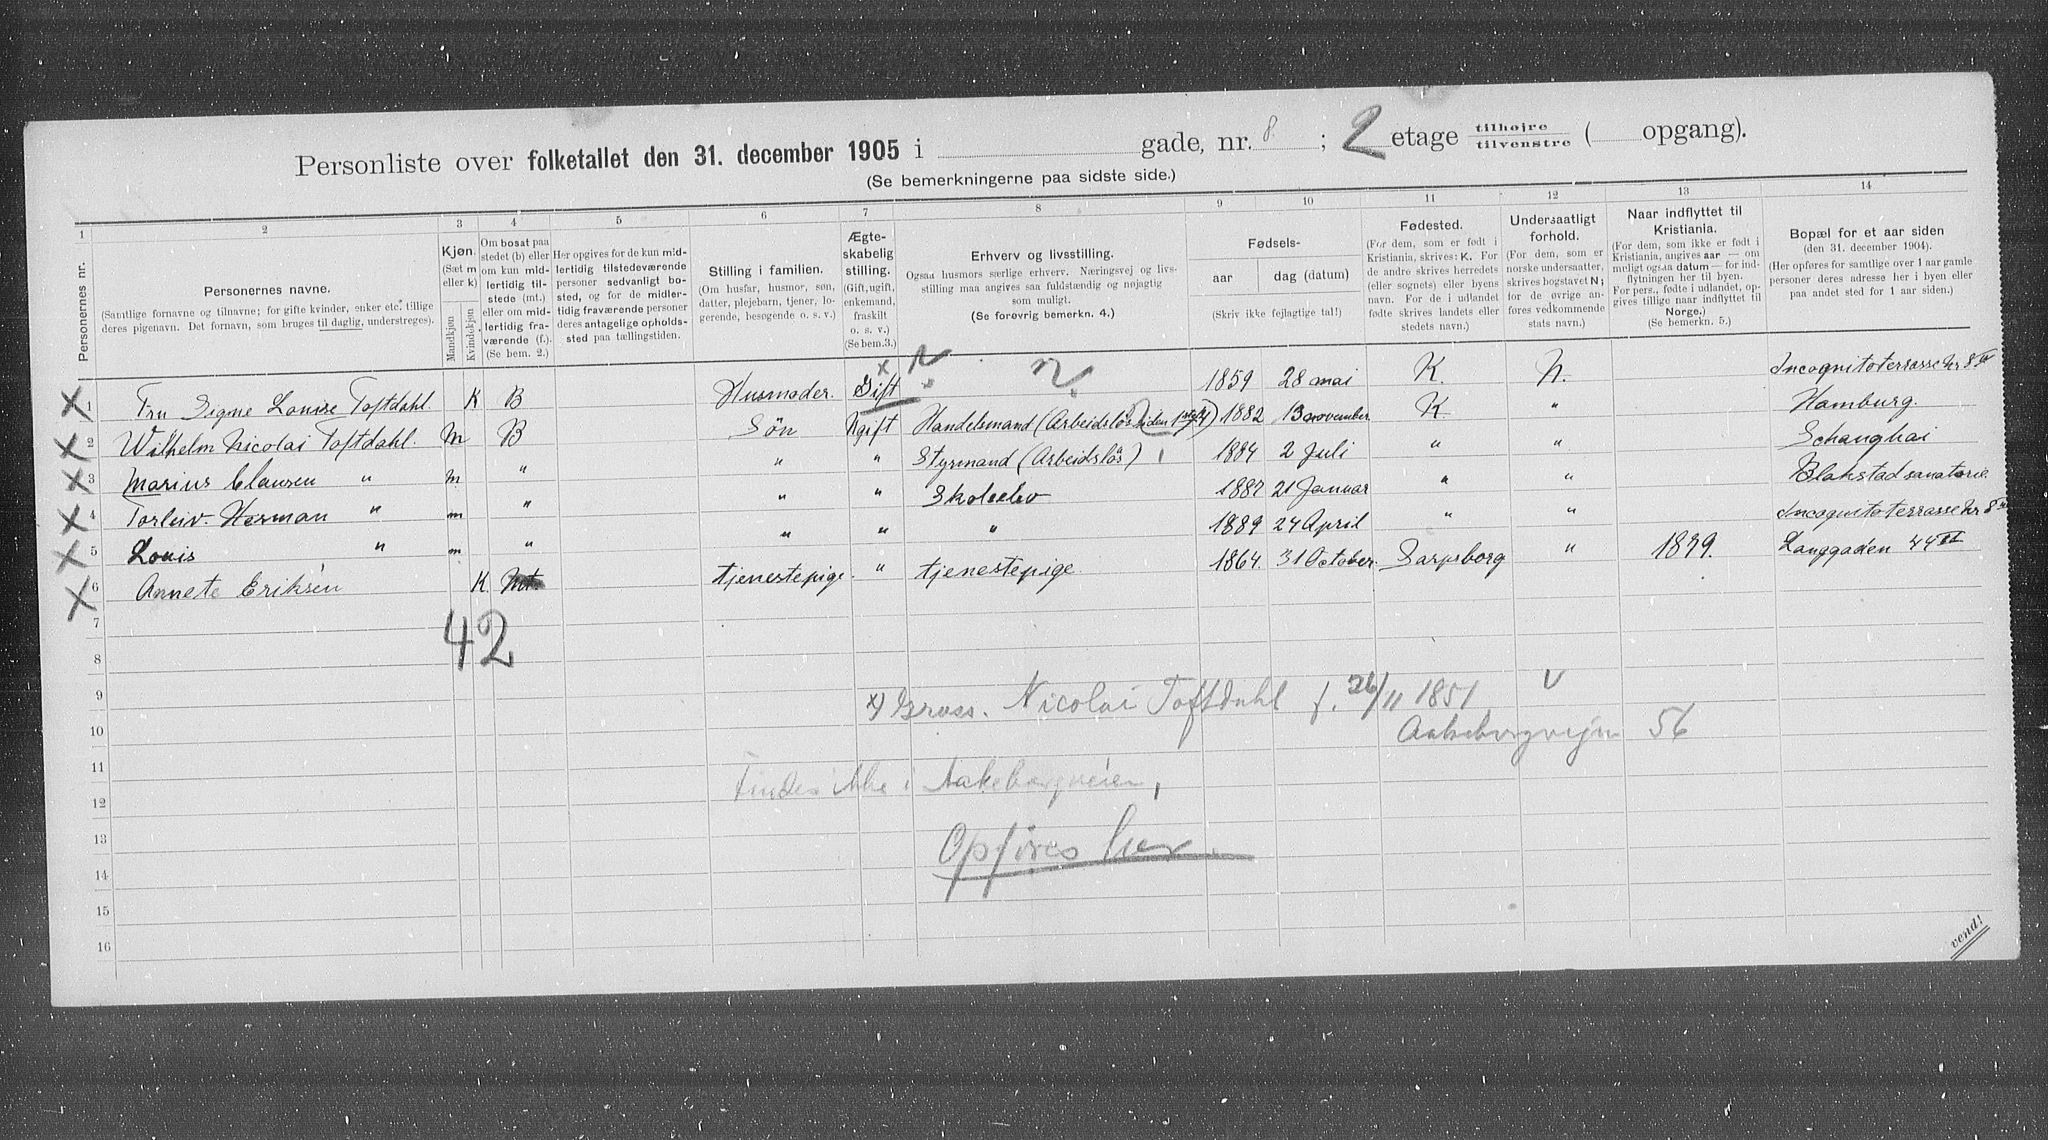 Personliste over folketallet den 31. december 1905 i gade, nr. 8 ; 2 etage tilhøjre tilvenstre ( opgang).
(Se bemerkningerne paa sidste side.)
1 2 3 4 5 6 7 8 9 10 11 12 13 14
Personernes nr.
Personernes navne.
(Samtlige fornavne og tilnavne; for gifte kvinder, enker etc. tillige deres pigenavn. Det fornavn, som bruges til daglig, understreges).
Kjøn.
(Sæt m eller k)
Mandkjøn Kvindekjøn
Om bosat paa stedet (b) eller om kun midlertidig tilstede (mt.) eller om midlertidig fraværende (f.) (Se bem. 2.)
Her opgives for de kun midlertidig tilstedeværende personer sedvanligt bosted, og for de midlertidig fraværende personer deres antagelige opholdssted paa tællingstiden.
Stilling i familien.
(Om husfar, husmor, søn, datter, plejebarn, tjener, logerende, besøgende o. s. v.)
Ægteskabelig stilling.
(Gift, ugift, enkemand, fraskilt o. s. v.) (Se bem.3.)
Erhverv og livsstilling.
Ogsaa husmors særlige erhverv. Næringsvej og livsstilling maa angives saa fuldstændig og nøjagtig som muligt.
(Se forøvrig bemerkn. 4.)
Fødsels-
aar dag (datum)
(Skriv ikke fejlagtige tal!)
Fødested.
(For dem, som er født i Kristiania, skrives: K. For de andre skrives herredets (eller sognets) eller byens navn. For de i udlandet fødte skrives landets eller stedets navn.)
Undersaatligt forhold.
(For dem, som er norske undersaatter, skrives bogstavet N; for de øvrige anføres vedkommende stats navn.)
Naar indflyttet til Kristiania.
(For dem, som ikke er født i Kristiania, angives aar — om muligt ogsaa datum — for indflytningen her til byen. For pers., fødte i udlandet, opgives tillige naar indflyttet til Norge.) (Se bemerkn. 5.)
Bopæl for et aar siden
(den 31. december 1904).
(Her opføres for samtlige over 1 aar gamle personer deres adresse her i byen eller paa andet sted for 1 aar siden.)
1 Fru Signe Louise Toftdahl. K B Husmoder. Gift 1859 28 mai K. N. Incognitoterrasse Nr 8
2 Wilhelm Nicolai Toftdahl. M B Søn Ugift Handelsmand (Arbeidsløs siden) 1882 13 november K. " Hamburg.
3 Marius Clausen " m " " " Styrmand (Arbeidsløs) 1884 2 Juli " " Schanghai
4 Torleiv Herman " m " " " Skoleelev 1887 21 Januar " " Blakstad sanatorie.
5 Louis " m " " " " 1889 24 April " " Incognitoterrasse Nr 8
6 Annete Eriksen K. tjenestepige. " tjenestepige. 1864. 31 October. Sarpsborg " 1899. Langgaden 44
7
42
8
9
x) Gross. Nicolai Toftdahl f. 26/11 1851 V
10
Aakebergvejen 56
11
Findes ikke i Aakebergveien,
12
13
Opføres her.
14
15
16
vend!